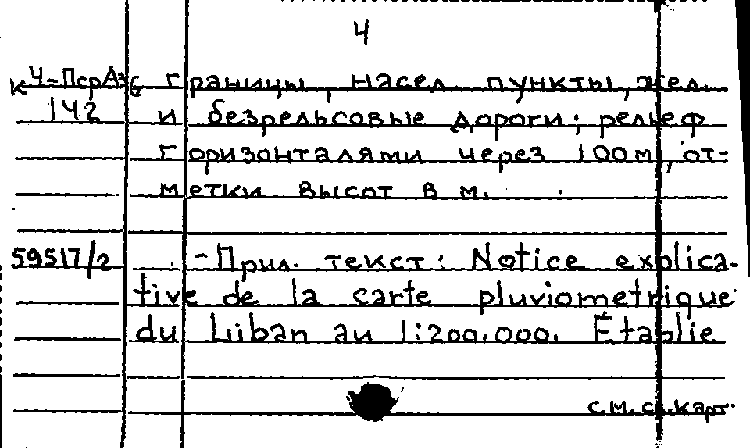 4
К 4-ПерАз6 границы, насел. пункты, жел.
142 и безрельсовые дороги; рельеф
горизонталями через 100м, от-
метки высот в м.
59517/2 - Прил. текст: Notice explica-
tive de la carte pluviometrique
du Liban au 1:200.000. Établie
с.м. сл. карт.